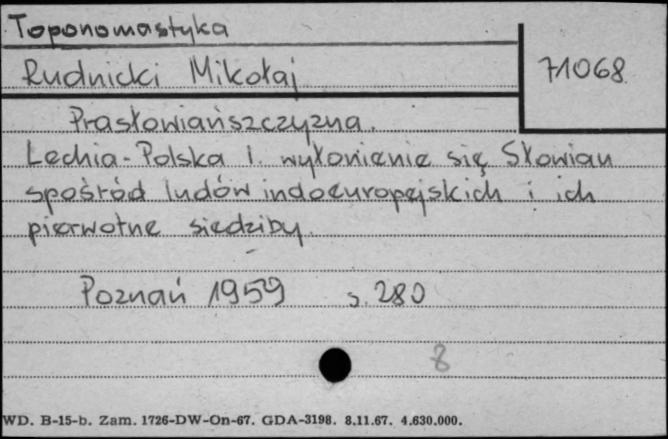 Toponomastyka
71068
Rudnicki Mikołaj
Prasłowiańszczyzna.
Lechia-Polska I. wyłonienie się Słowian
spośród ludów indoeuropejskich i ich
pierwotne siedziby.
Poznań 1959 s. 280
8
WD. B-15-b. Zam. 1726-DW-On-67. GDA-3198. 8.11.67. 4.630.000.